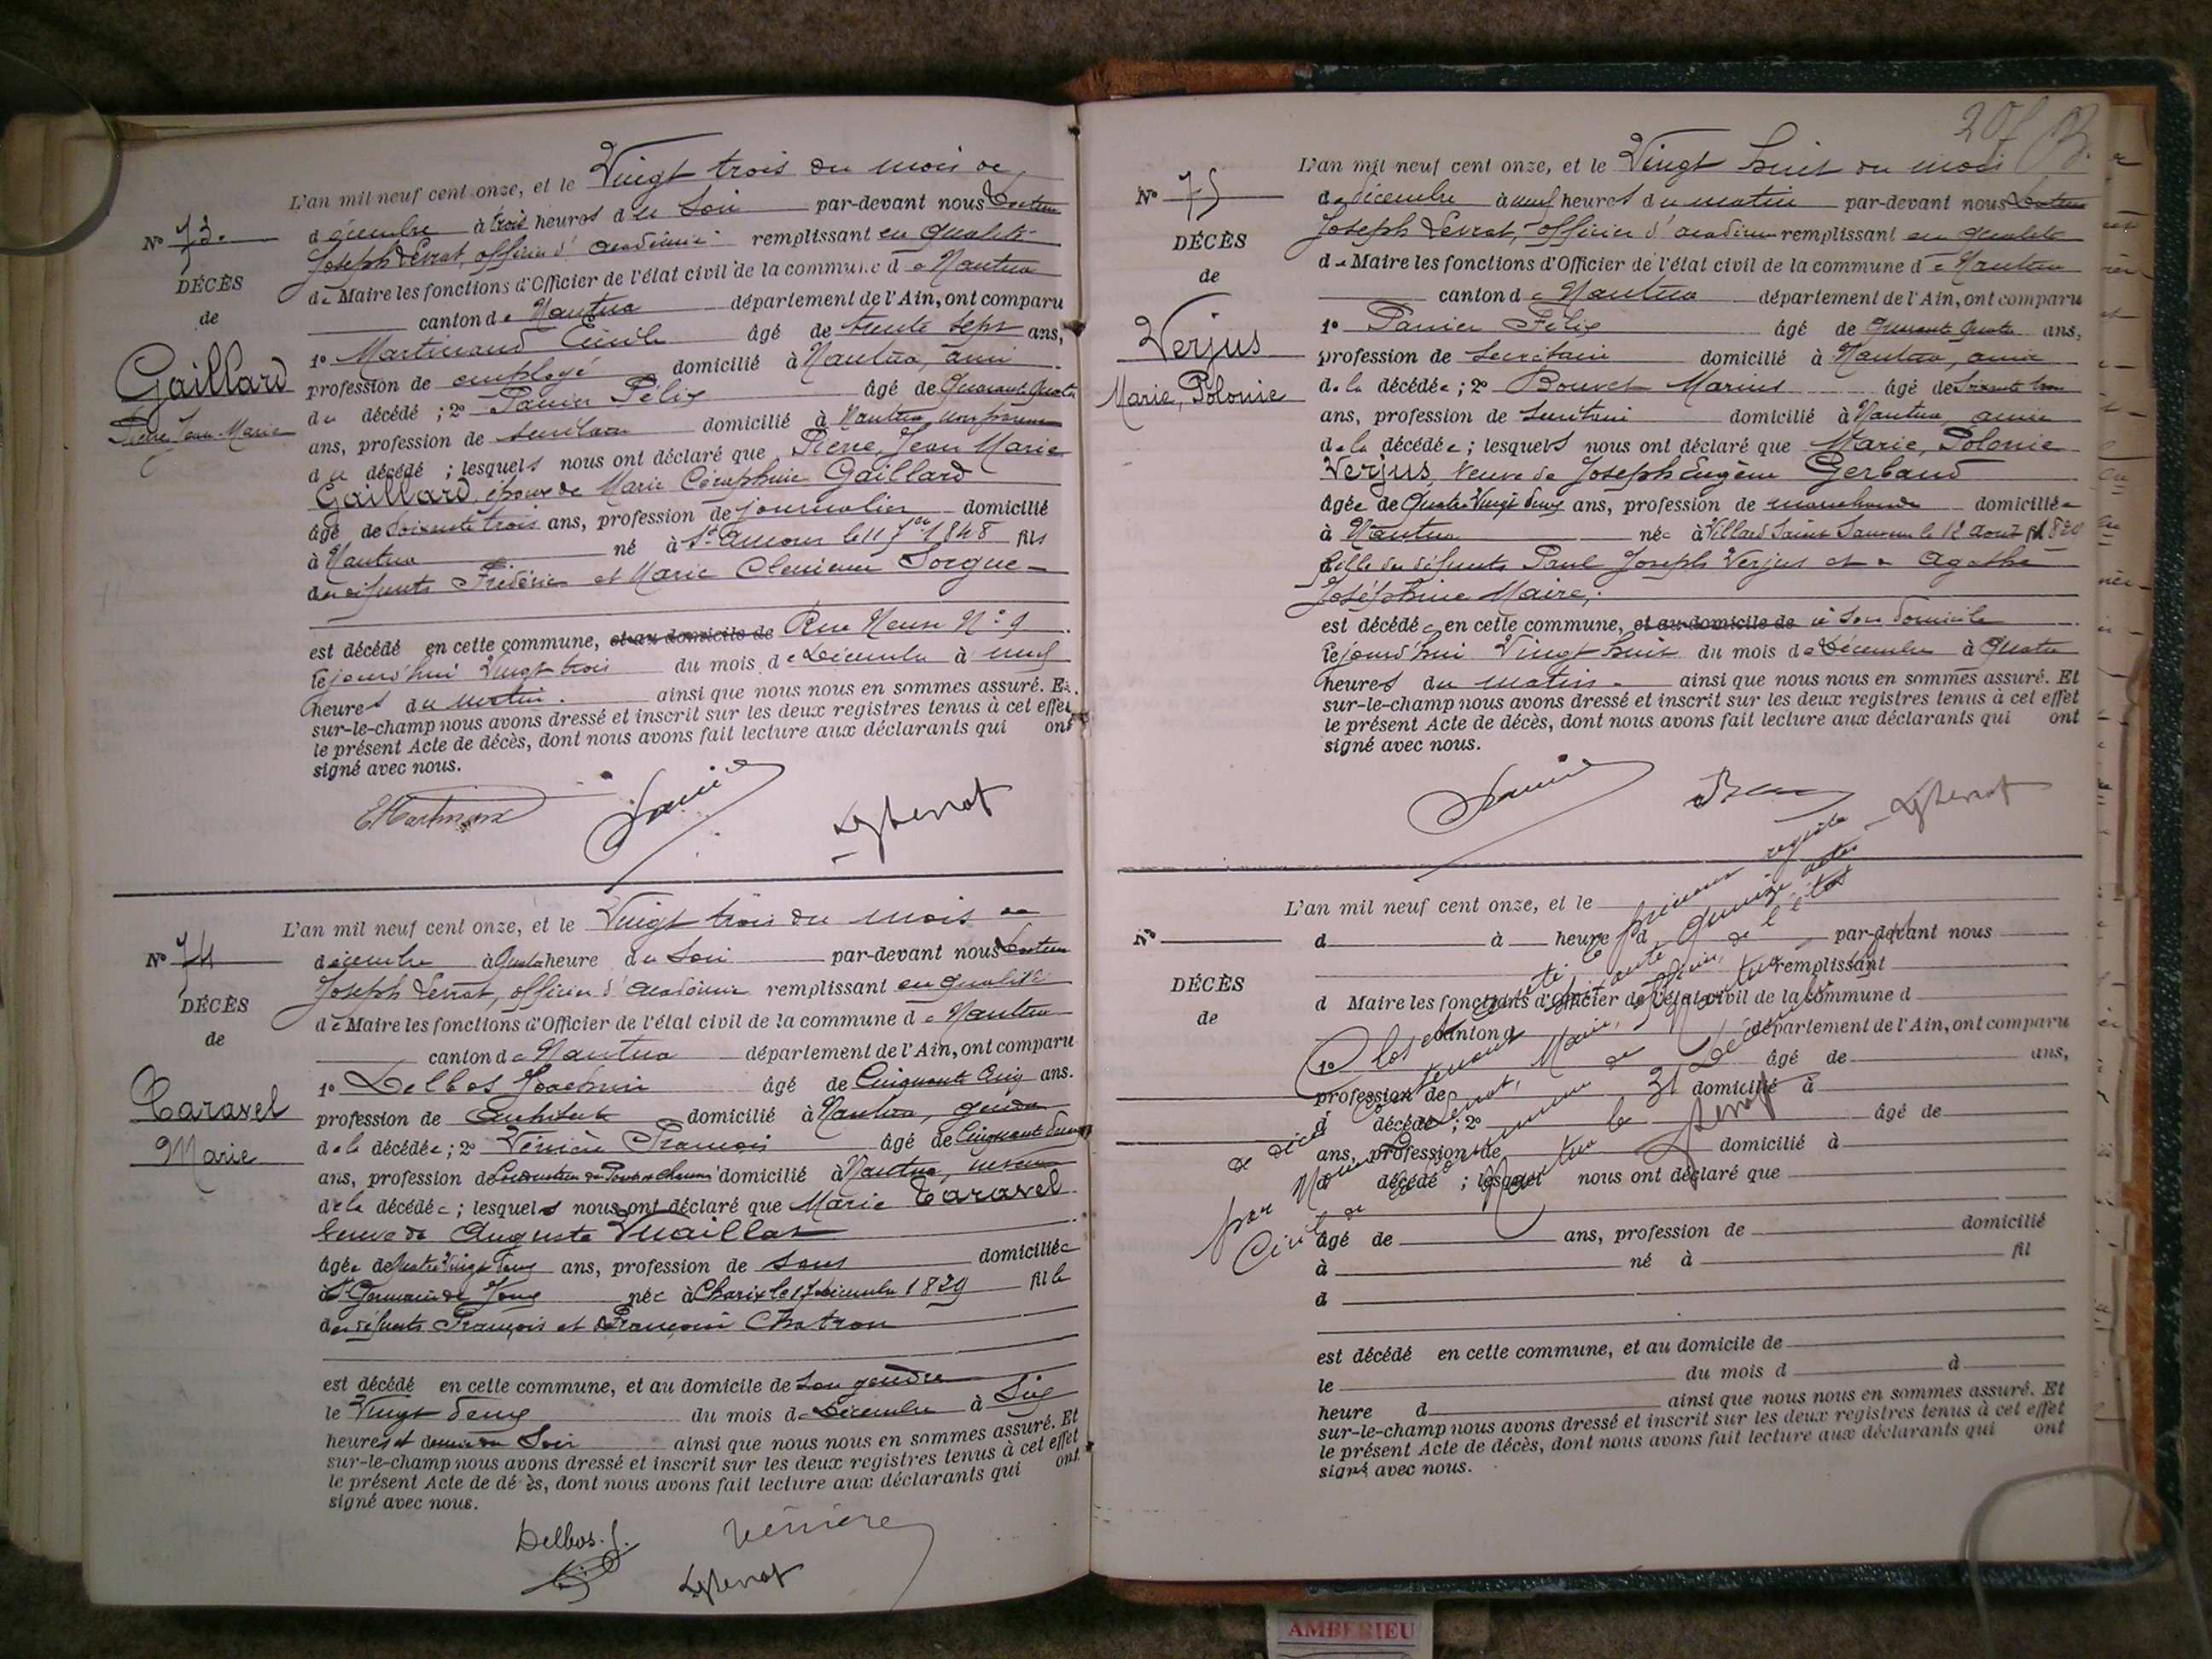 L'an mil neuf cent onze, et le Vingt trois du mois de
N° 73.
décembre à trois heures du Soir par-devant nous Docteur
Joseph Levrat, officier d'académie remplissant en qualité
DÉCÈS
de Maire les fonctions d'Officier de l'état civil de la commune de Nantua
de
canton de Nantua département de l'Ain, ont comparu
Gaillard
Pierre Jean Marie
1° Martinand Emile âgé de trente sept ans,
profession de employé domicilié à Nantua, ami
du décédé ; 2° Panier Félix âgé de Quarante Quatre
ans, profession de secrétaire domicilié à Nantua, non parent
du décédé ; lesquels nous ont déclaré que Pierre, Jean Marie
Gaillard, époux de Marie Céraphine Gaillard
âgé de Soixante trois ans, profession de journalier domicilié
à Nantua né à St Amour le 11 7bre 1848 fils
des défunts Frédéric et Marie Clémence Sorgue
est décédé en cette commune, et au domicile de Rue Neuve N° 9
le jourd'hui Vingt trois du mois de Décembre à neuf
heures du matin. ainsi que nous nous en sommes assuré. Et
sur-le-champ nous avons dressé et inscrit sur les deux registres tenus à cet effet
le présent Acte de décès, dont nous avons fait lecture aux déclarants qui ont
signé avec nous.
EMartinand Panier Levrat
L'an mil neuf cent onze, et le Vingt trois du mois de
N° 74
décembre à Quatre heure du Soir par-devant nous Docteur
Joseph Levrat, officier d'académie remplissant en qualité
DÉCÈS
de Maire les fonctions d'Officier de l'état civil de la commune de Nantua
de
canton de Nantua département de l'Ain, ont comparu
Taravel
Marie
1° Delbos Joachim âgé de Cinquante Cinq ans.
profession de Architecte domicilié à Nantua, gendre
de la décédée ; 2° Vernière François âgé de Cinquante Deux
ans, profession de Conducteur des Ponts et chaussées domicilié à Nantua, neveu
de la décédée ; lesquels nous ont déclaré que Marie Taravel
Veuve de Auguste Vuaillat
âgée de Quatre Vingt Deux ans, profession de sans domiciliée
à St Germain de Joux née à Charix le 17 décembre 1829 fille
des défunts François et Françoise Chatron
est décédé en cette commune, et au domicile de son gendre
le Vingt deux du mois de Décembre à Six
heures et demie du Soir ainsi que nous nous en sommes assuré. Et
sur-le-champ nous avons dressé et inscrit sur les deux registres tenus à cet effet
le présent Acte de décès, dont nous avons fait lecture aux déclarants qui ont
signé avec nous.
Delbos. J. Vernière
Levrat
207
L'an mil neuf cent onze, et le Vingt huit du mois
N° 75
de décembre à neuf heures du matin par-devant nous Docteur
Joseph Levrat, officier d'académie remplissant en qualité
DÉCÈS
de Maire les fonctions d'Officier de l'état civil de la commune de Nantua
de
canton de Nantua département de l'Ain, ont comparu
Verjus
Marie, Polonie
1° Panier Félix âgé de Quarante Quatre ans,
profession de Secrétaire domicilié à Nantua, ami
de la décédée ; 2° Bouvet Marius âgé de Soixante trois
ans, profession de domicilié à Nantua, ami
de la décédée ; lesquels nous ont déclaré que Marie, Polonie
Verjus, Veuve de Joseph Eugène Gerbaud
âgée de Quatre Vingt deux ans, profession de marchande domiciliée
à Nantua née à Villard Saint Sauveur le 12 août 1829
fille des défunts Paul Joseph Verjus et Agathe
Joséphine Maire,
est décédée en cette commune, et au domicile de à son domicile
le jourd'hui Vingt huit du mois de Décembre à Quatre
heures du matin. ainsi que nous nous en sommes assuré. Et
sur-le-champ nous avons dressé et inscrit sur les deux registres tenus à cet effet
le présent Acte de décès, dont nous avons fait lecture aux déclarants qui ont
signé avec nous.
Panier Levrat
L'an mil neuf cent onze, et le
N°
d à heure d par-devant nous
remplissant
DÉCÈS
d Maire les fonctions d'Officier de l'état civil de la commune d
de
canton d département de l'Ain, ont comparu
1° âgé de ans,
profession de domicilié à
d décédé ; 2° âgé de
ans, profession de domicilié à
d décédé ; lesquel nous ont déclaré que
âgé de ans, profession de domicilié
à né à fil
d
est décédé en cette commune, et au domicile de
le du mois d à
heure d ainsi que nous nous en sommes assuré. Et
sur-le-champ nous avons dressé et inscrit sur les deux registres tenus à cet effet
le présent Acte de décès, dont nous avons fait lecture aux déclarants qui ont
signé avec nous.
Clos et arrêté le présent registre
de décès contenant soixante quinze actes
par Nous Levrat, Maire, officier de l'état
Civil de la commune de Nantua
Nantua le 31 Décembre 1911
Levrat
AMBERIEU